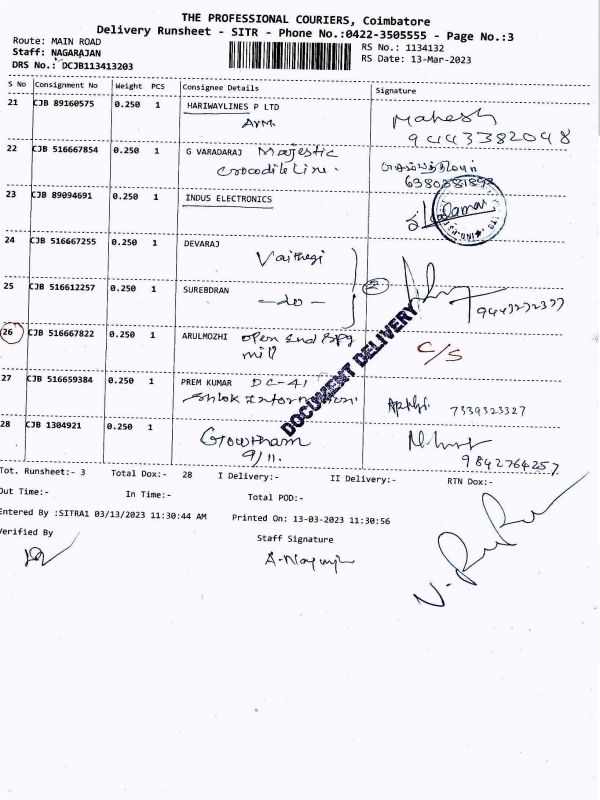 THE PROFESSIONAL COURIERS, Coimbatore
Delivery Runsheet - SITR - Phone No.:0422-3505555 - Page No.:3
Route: MAIN ROAD
Staff: NAGARAJAN
DRS No.: DCJB113413203
RS No.: 1134132
RS Date: 13-Mar-2023
S No Consignment No Weight PCS Consignee Details Signature
21 CJB 89160575 0.250 1 HARIWAYLINES P LTD Mahesh
9443382048
22 CJB 516667854 0.250 1 G VARADARAJ Majestic
crocodile line.
23 CJB 89094691 0.250 1 INDUS ELECTRONICS
24 CJB 516667255 0.250 1 DEVARAJ
Vaithegi
25 CJB 516612257 0.250 1 SUREBDRAN
-do-
26 CJB 516667822 0.250 1 ARULMOZHI open end spg C/S
mill
27 CJB 516659384 0.250 1 PREM KUMAR DC-41
7339323327
28 CJB 1304921 0.250 1 Gowtham
9/11. 9842764257
DOCUMENT DELIVERY
Tot. Runsheet:- 3 Total Dox:- 28 I Delivery:- II Delivery:- RTN Dox:-
Out Time:- In Time:- Total POD:-
Entered By :SITRA1 03/13/2023 11:30:44 AM Printed On: 13-03-2023 11:30:56
Verified By Staff Signature